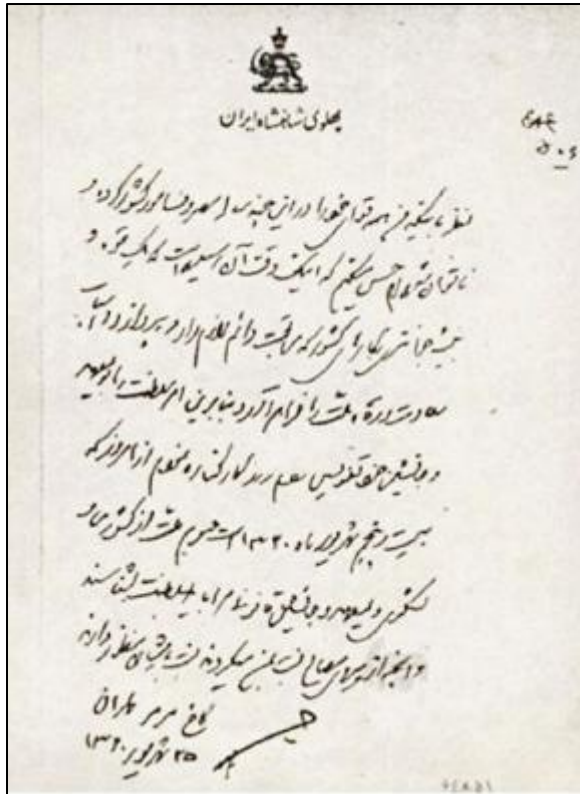 پهلوی شاهنشاه ایران
نظر باینکه من همه قوای خود را در این چند ساله مصروف امور کشور کرده و
ناتوان شده‌ام حس میکنم که اینک وقت آن رسیده است که یک قوه و
بنیه جوانتری بکارهای کشور که مراقبت دائم لازم دارد بپردازد و اسباب
سعادت و رفاه ملت را فراهم آورد بنابراین امور سلطنت را بولیعهد
و جانشین خود تفویض نمودم و از کار کناره نمودم از امروز که
بیست و پنجم شهریور ماه ۱۳۲۰ است عموم ملت از کشوری و
لشکری ولیعهد و جانشین قانونی مرا باید بسلطنت بشناسند
و آنچه از پیروی مصالح نسبت بمن میکردند نسبت بایشان منظور دارند
کاخ مرمر تهران
۲۵ شهریور ۱۳۲۰